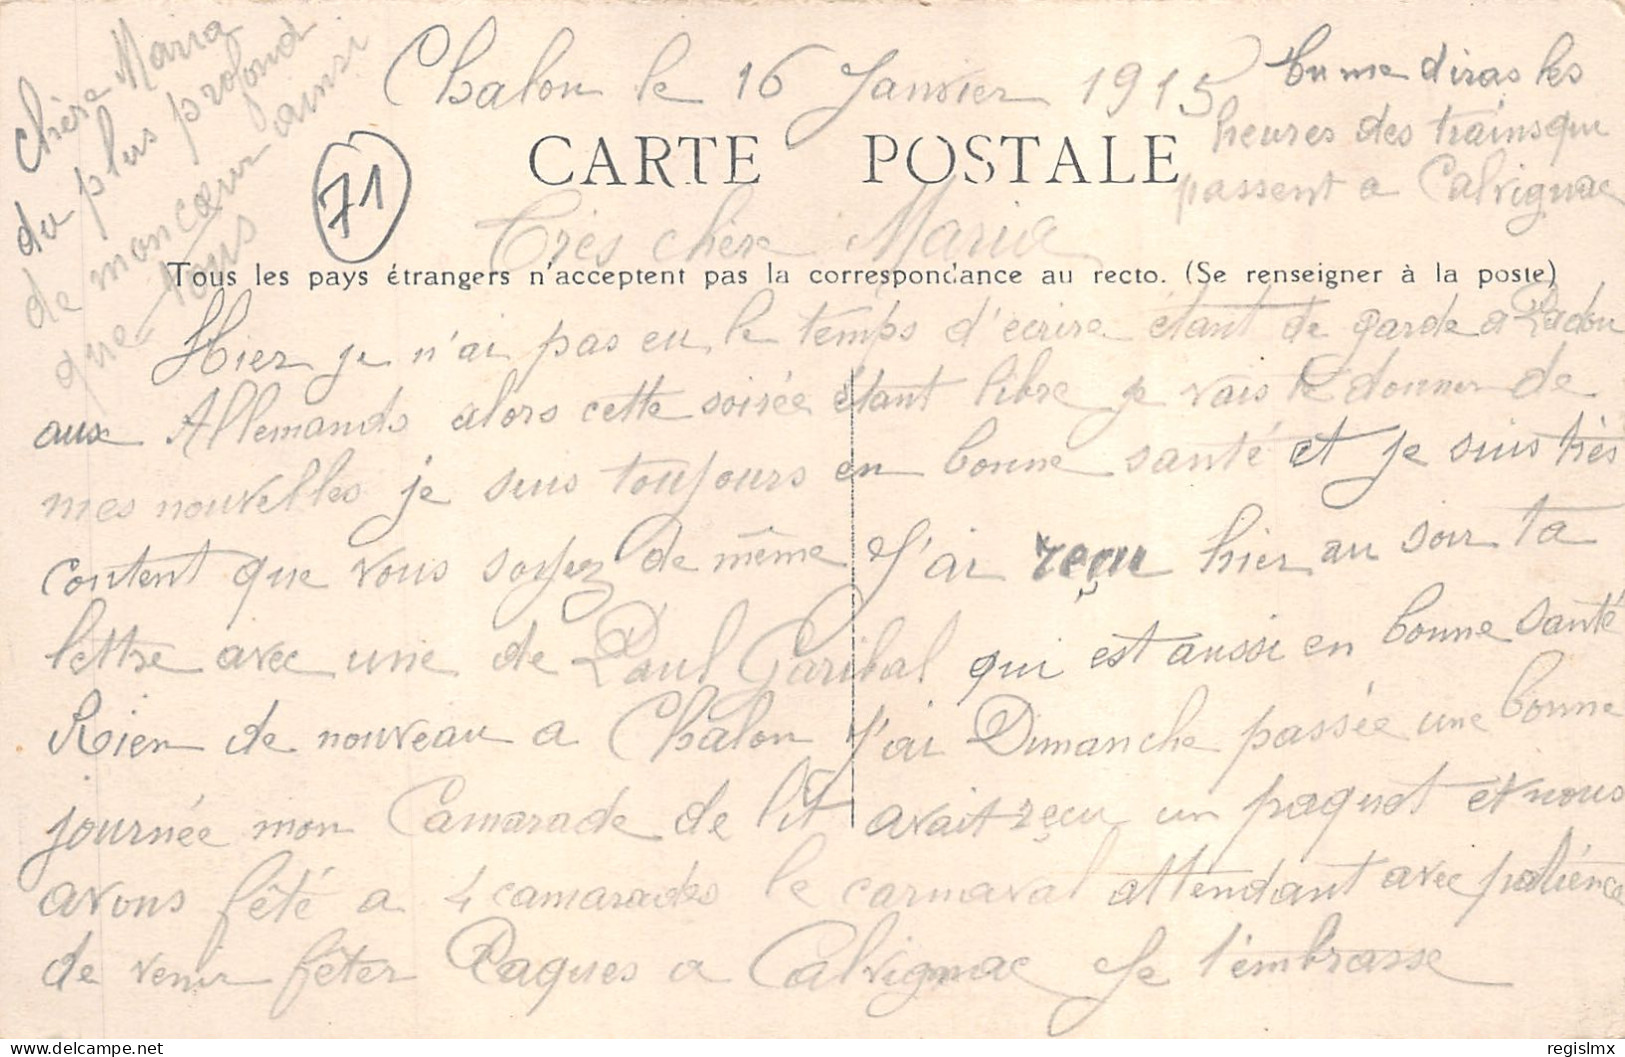 Chalon le 16 Janvier 1915
tu me diras les
heures des trains qui
passent a Calvignac
CARTE POSTALE
71
Très chère Maria
Tous les pays étrangers n'acceptent pas la correspondance au recto. (Se renseigner à la poste)
Hier je n'ai pas eu le temps d'ecrire étant de garde a
aux Allemands alors cette soirée étant libre je vais te donner de
mes nouvelles je suis toujours en bonne santé et je suis très
content que vous soyez de même J'ai reçu hier au soir ta
lettre avec une de Paul Garibal qui est aussi en bonne santé
Rien de nouveau a Chalon J'ai Dimanche passée une bonne
journée mon Camarade de lit avait reçu un paquet et nous
avons fêté a 4 camarades le carnaval attendant avec patience
de venir fêter Paques a Calvignac Je t'embrasse
chère Maria
du plus profond
de mon cœur ainsi
que Vous
regislmx